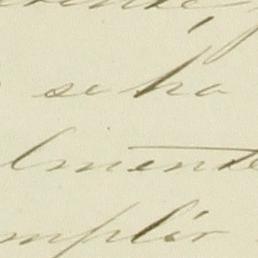 se ha
lmente
mplir